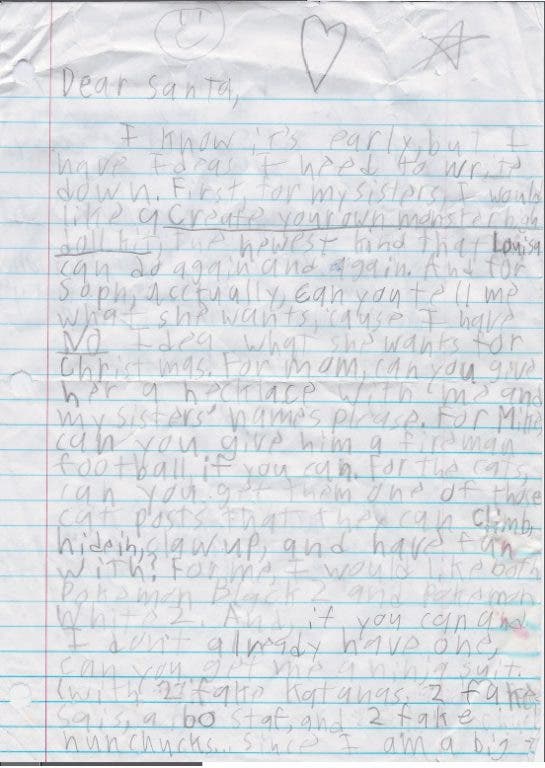 Dear Santa,
I know it's early, but I
have Ideas I need to write
down. First for my sisters, I would
like a Create your own monster high
doll kit, the newest kind that Louisa
can do again and again. And for
Soph, acctually, can you tell me
what she wants, cause I have
NO Idea what she wants for
Christmas. For mom, can you give
her a necklace with me and
my sisters' names please. For Mike
can you give him a fireman
football if you can. For the cats,
can you get them one of those
cat posts that they can climb,
hide in, claw up, and have fun
with? For me, I would like both
Pokemon Black 2 and Pokemon
White 2. And, if you can and
I don't already have one,
can you get me a ninja suit.
(with 2 fake katanas, 2 fake
sais, a bo staf, and 2 fake
nunchucks... since I am a big